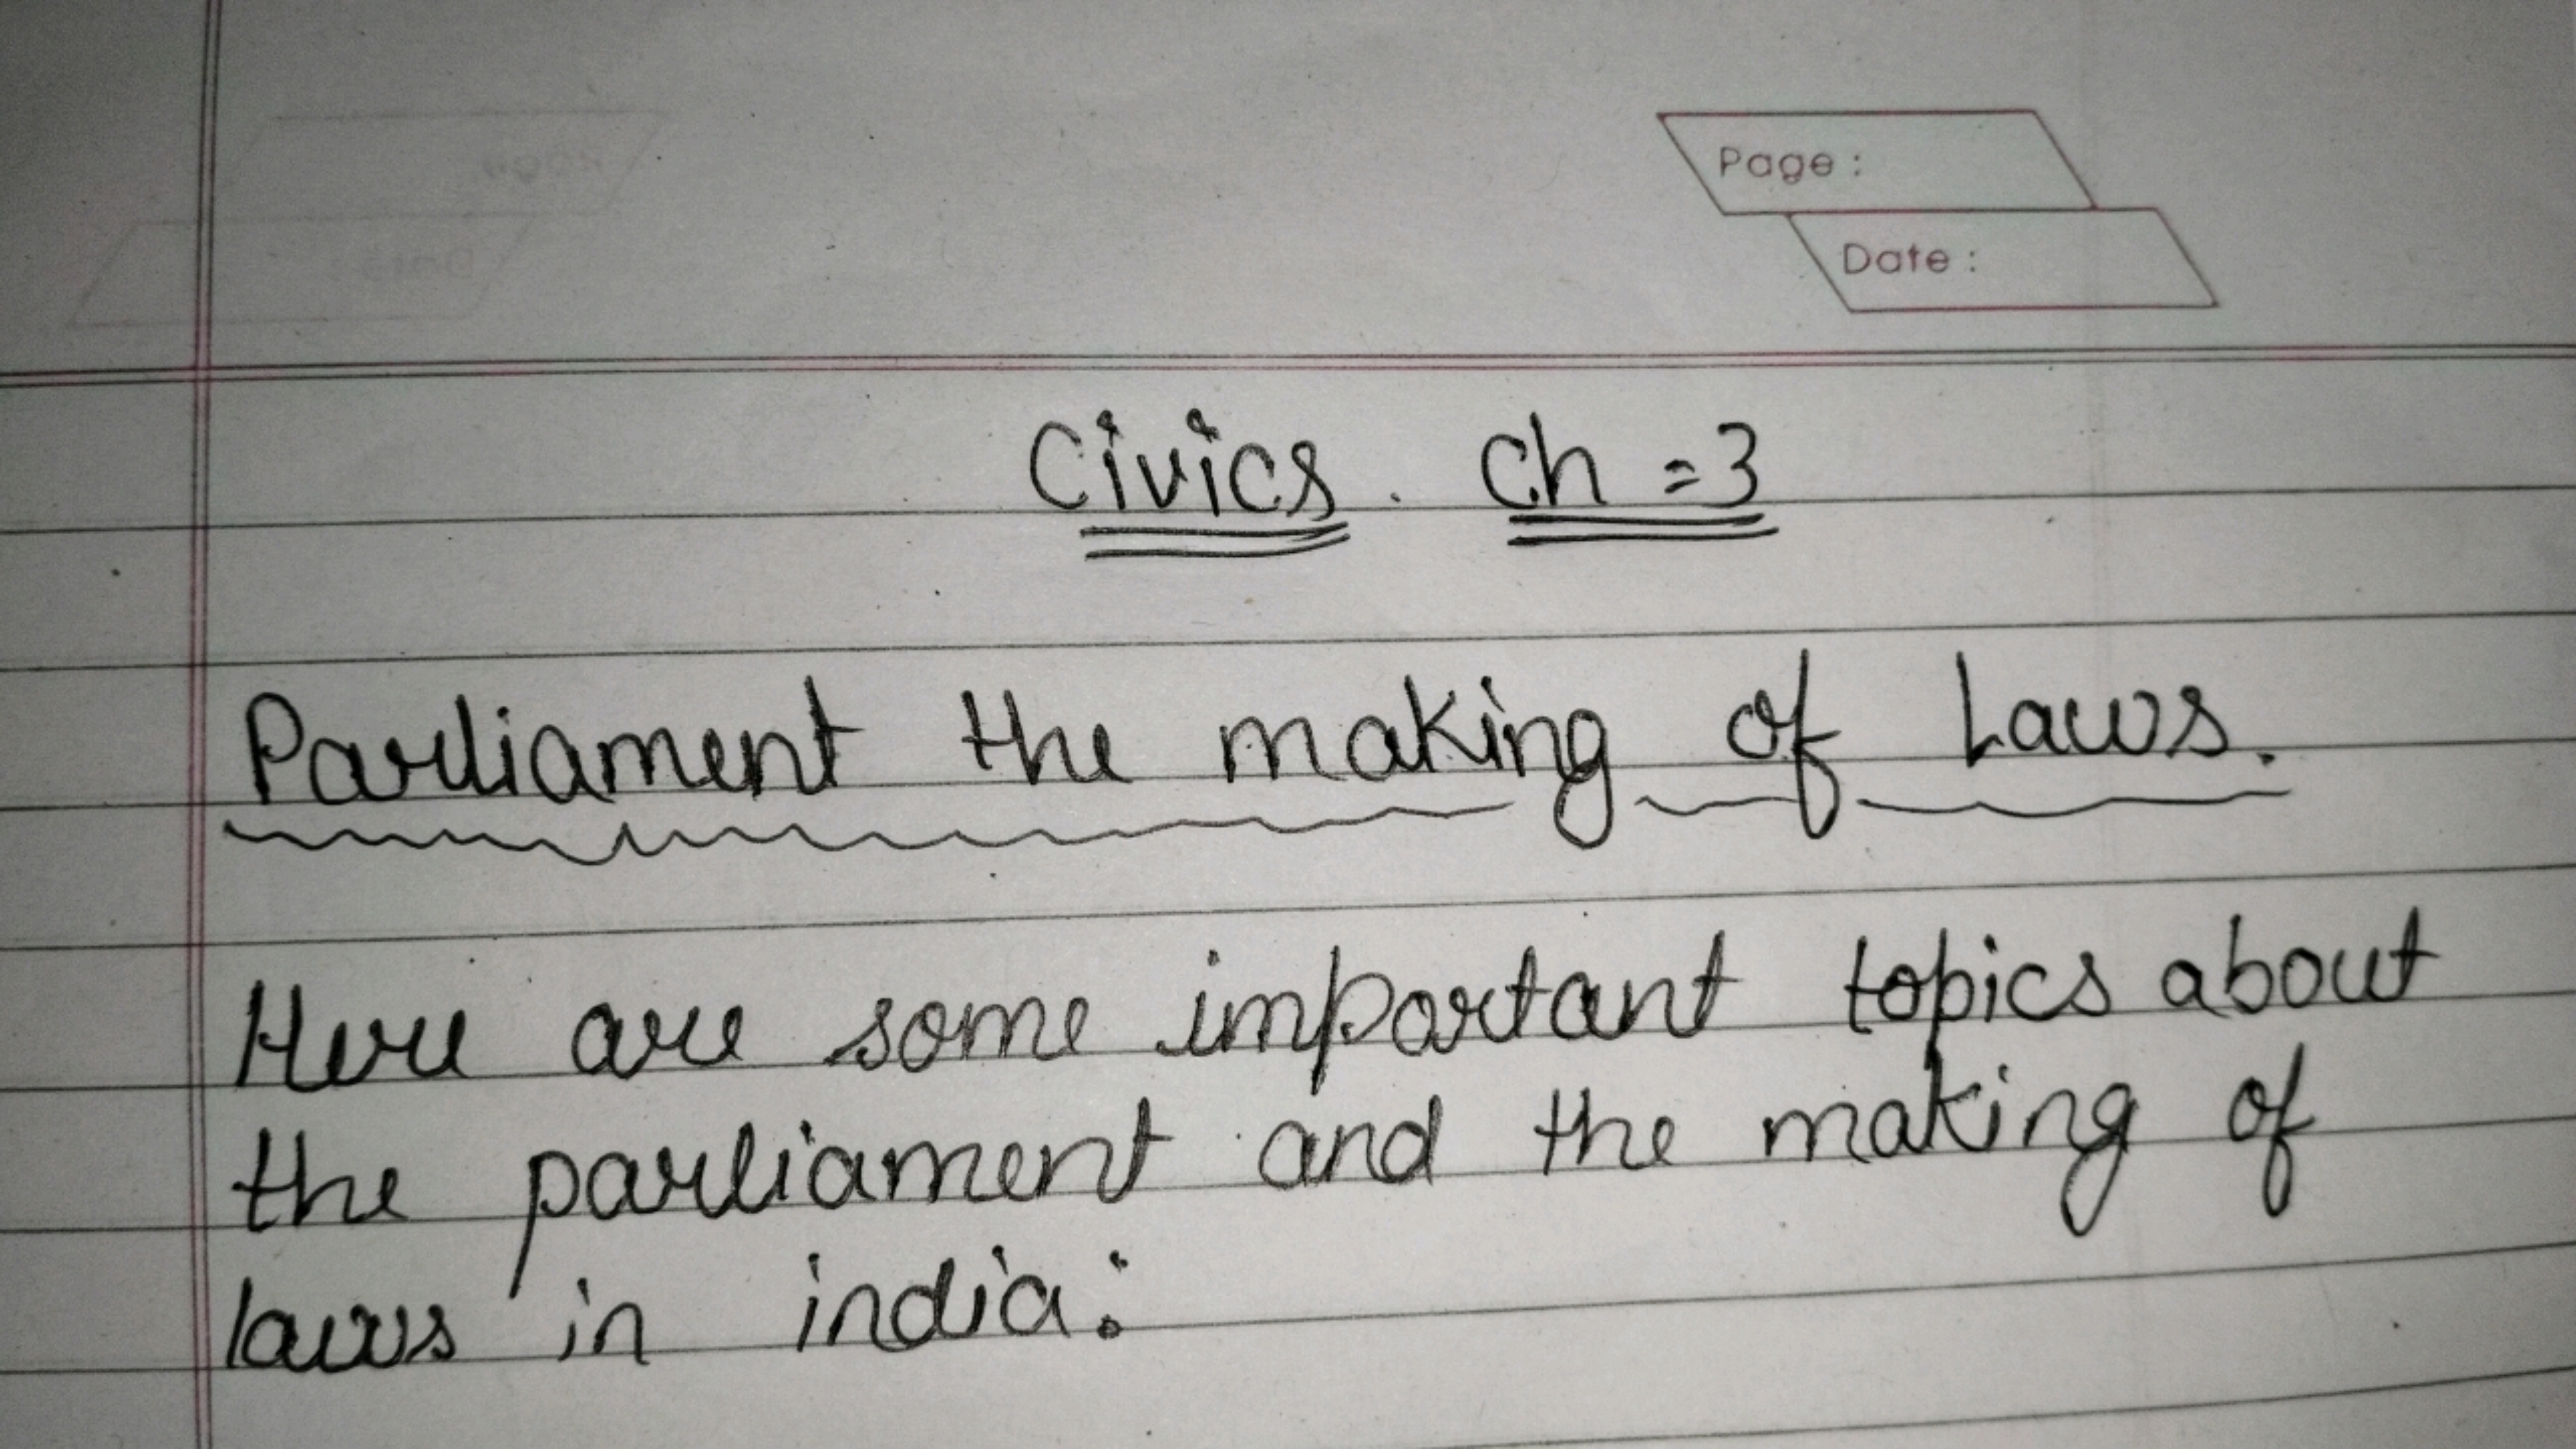 Page :
Date :
Civics. Ch = 3
Parliament the making of Laws.
Here are some important topics about
the parliament and the making of
laws in india: